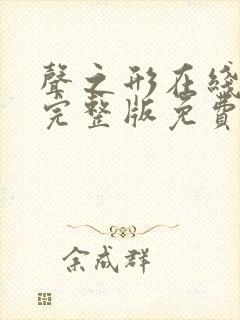 聲之形在綫
完整版免費
余成群